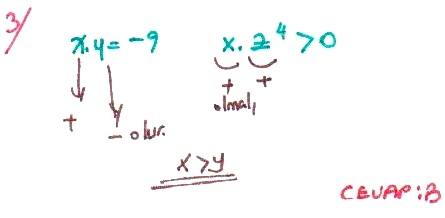 3/
x.y = -9   x.z⁴ > 0
+   +
+   olmalı
- olur.
x > y
CEVAP: B